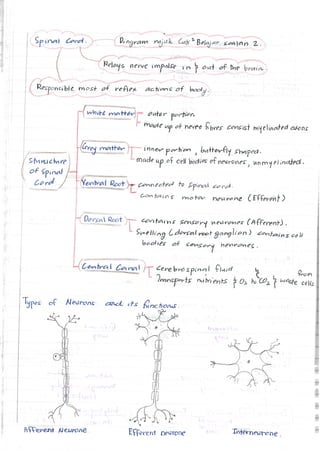 Spinal Cord.
Diagram rujuk Cap² Belajar sem/an 2.
Relays nerve impulse in & out of the brain.
Responsible most of reflex actions of body.
Structure of Spinal Cord
White matter
outer portion
made up of nerve fibres consist myelinated axons
Grey matter
inner portion, butterfly shaped.
made up of cell bodies of neurones, unmyelinated.
Ventral Root
connected to spinal cord.
contains motor neurone (Efferent)
Dorsal Root
contains sensory neurones (Afferent).
Swelling (dorsal root ganglion) contains cell
bodies of sensory neurones.
Central Canal
Cerebrospinal fluid
Transports nutrients & O₂ to CO₂ & waste from cells
Types of Neurons and its functions.
Afferent Neurone
Efferent neurone
Interneurone.